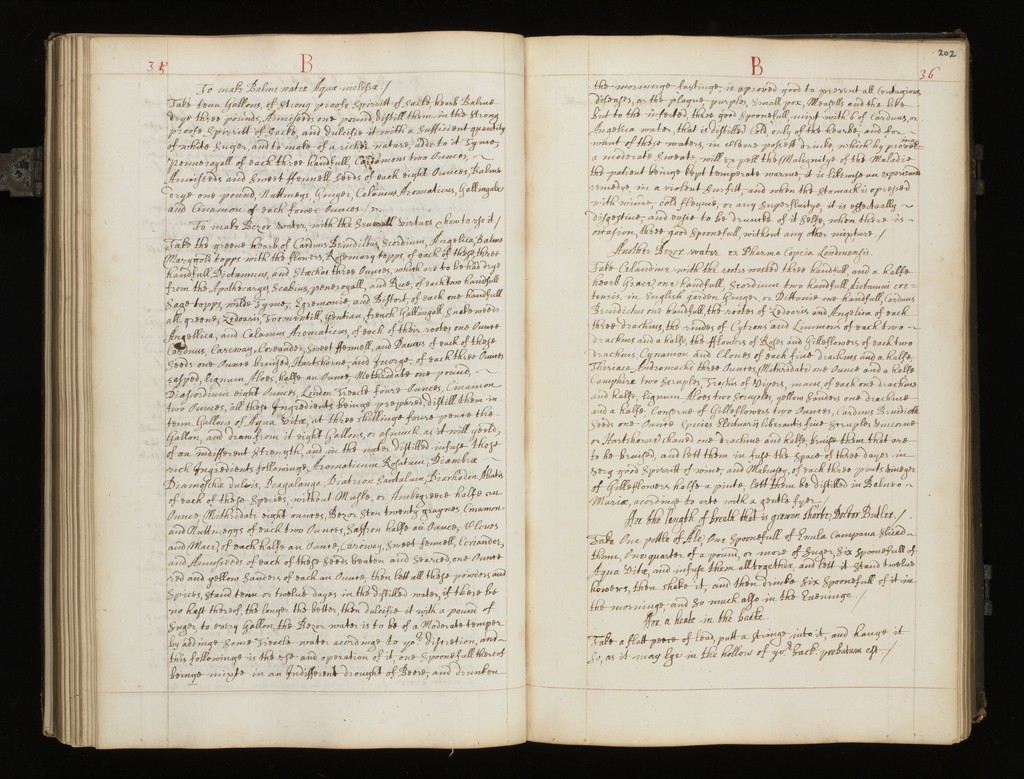 35
B
To make Balme water Aqua melissæ /
Take tenn Gallons, of strong proofe Spirritt of Sacke, hearb Balme
drye three pounds, Anniseeds one pound, distill them in the strong
proofe Spirritt of Sacke, and dulcifie it with a Sufficient quantity
of white Suger, and to make of a richer nature, adde to it Tyme,
Penneroyall of each three handfull, Cardamons two Ounces,
Anniseeds and Sweet ffennell Seeds of each eight Ounces, Balme
drye one pound, Nuttmegs, Ginger, Calamus Aromaticus, Gallingale
and Cinamon of each fower Ounces /
To make Bezor water, with the Severall virtues & how to use it /
Take the greene hearb of Carduus Benidictus, Scordium, Angelica, Balme
Marygold topps with the flowers, Rosemary topps, of each of these three
handfull, Dictamnus, and Stachar three Ounces, which are to be had drye
from the Apothecarye, Scabius, peneroyall, and Rue, of each two handfull
Sage topps, wilde Tyme, Egremonie, and Bistort, of each one handfull
all greene, Zedoaris, Tormentill, Gentian, french Gallingall, Snakeweed
Angellica, and Calamus Aromaticus, of each of their rootes one Ounce
Carduus, Careway, Coreander, Sweet ffennell, and Daucus of each of these
Seeds one Ounce bruised, Hartshorne, and Ivorye, of each three Ounces
rasped, lignum Aloes, halfe an Ounce, Methridate one pound,
Diascordium eight Ounces, London Treacle foure Ounces, Cinamon
two Ounces, all these Ingredients beinge prepared, distill them in
tenn Gallons of Aqua Vitæ, at three shillinge foure pence the
Gallon, and draw from it eight Gallons, or as much as it will yeild,
of an indifferent Strength, and in the water distilled infuse these
rich Ingredients followinge, Aromaticum Rosatum, Diambræ
Diamoschu dulcis, Diagalanga, Diatrion Santalum, Diarhodon Abatis
of each of these Species, without Muske, or Ambegreece halfe an
Ounce, Mithridate eight ounces, Bezor Ston twenty graynes Cinamon
and Nuttmeggs of each two Ounces, Saffron halfe an Ounce, Cloves
and Mace, of each halfe an Ounce, Caroway, Sweet fennell, Coriander,
and Anniseeds of each of these Seeds beaten and Searced, one Ounce
red and yellow Sanders of each an Ounce, then lett all these powders and
Spices, Stand tenn or twelve dayes in the distilled water, if there be
no hast thereof, the longer the better, then dulcifie it with a pound of
Suger to every Gallon, the Bezor water is to be of a Moderate temper
by addinge Some Treacle water acordinge to yor discretion, and
this followinge is the use and operation of it, one Spoonefull thereof
beinge mixte in an Indifferent drought of Beere, and drunken
202
B
36
the morninge fastinge, is aproved good to prevent all contagious
diseases, as the plague purples, Small pox, Measells and the like
But to the infected, three good Spoonefull, mixt with 6 of Carduus, or
Angelica water, that is distilled Cold, only of the hearbs, and for
want of these waters, in cleere possett drinke, which by provokinge
a moderate Sweate, will expell the Malignitye of the Maladie
the patient beinge kept temperate warme, it is likewise an experienced
remedye in a violent Surfitt, and when the stomack is opresed
with winde, cold flegme, or any Superfluitye, it is effectually
digestive, and easie to be drunke of it Selfe, when there is
occasion, three good Spoonefull, without any other mixture /
Another Bezor water ex Pharma Copeia Londinensis.
Take Celandine with the rootes washed three handfull, and a halfe
hearb Grace, one handfull, Scordium two handfull, dictamni cre-
tensis, in English garden Ginger, or Dittanie one handfull, Carduus
Benidictus one handfull, the rootes of Zedoaris and Angelica of each
three drachms, the rindes of Cytrons and Limmons of each two
drachms and a halfe, the fflowers of Roses and Gilleflowers of each two
drachms, Cynamon and Cloves of each five drachms and a halfe,
Theriaca Andromachi three Ounces, Mithridati one Ounce and a halfe
Camphire two Scruples, Trochis of Vipers, mace of each one drachme
and halfe, lignum Aloes two Scruples, yellow Sanders one drachme
and a halfe, Conserve of Gilleflowers two Ounces, Carduus Benidictus
Seeds one Ounce Species Electuarij liberantis five Scruples Unicorne
or Hartshorne shaved one drachme and halfe, bruise them that are
to be bruised, and lett them in fuse the Space of three dayes in
very good Spirritt of wine, and Malmsey, of each three pints vineger
of Gilleflowers halfe a pinte, lett them be distilled in Balneo
Mariæ, acordinge to arte with a gentle fyer /
ffor the length of breath that is growen shorte, Doctor Butler /
Take One pottle of Ale, One Spoonefull of Enula Campana Sliced
thinne, One quarter of a pound, or more of Suger, Six Spoonefull of
Aqua Vitæ, and infuse them all together, and lett it Stand twelve
howers, then shake it, and then drinke Six Spoonefull of it in
the morninge and So much also in the Eueninge /
ffor a heate in the backe
Take a flatt peece of lead, putt a Stringe into it, and hange it
So, as it may lye in the hollow of yor back. probatum est /